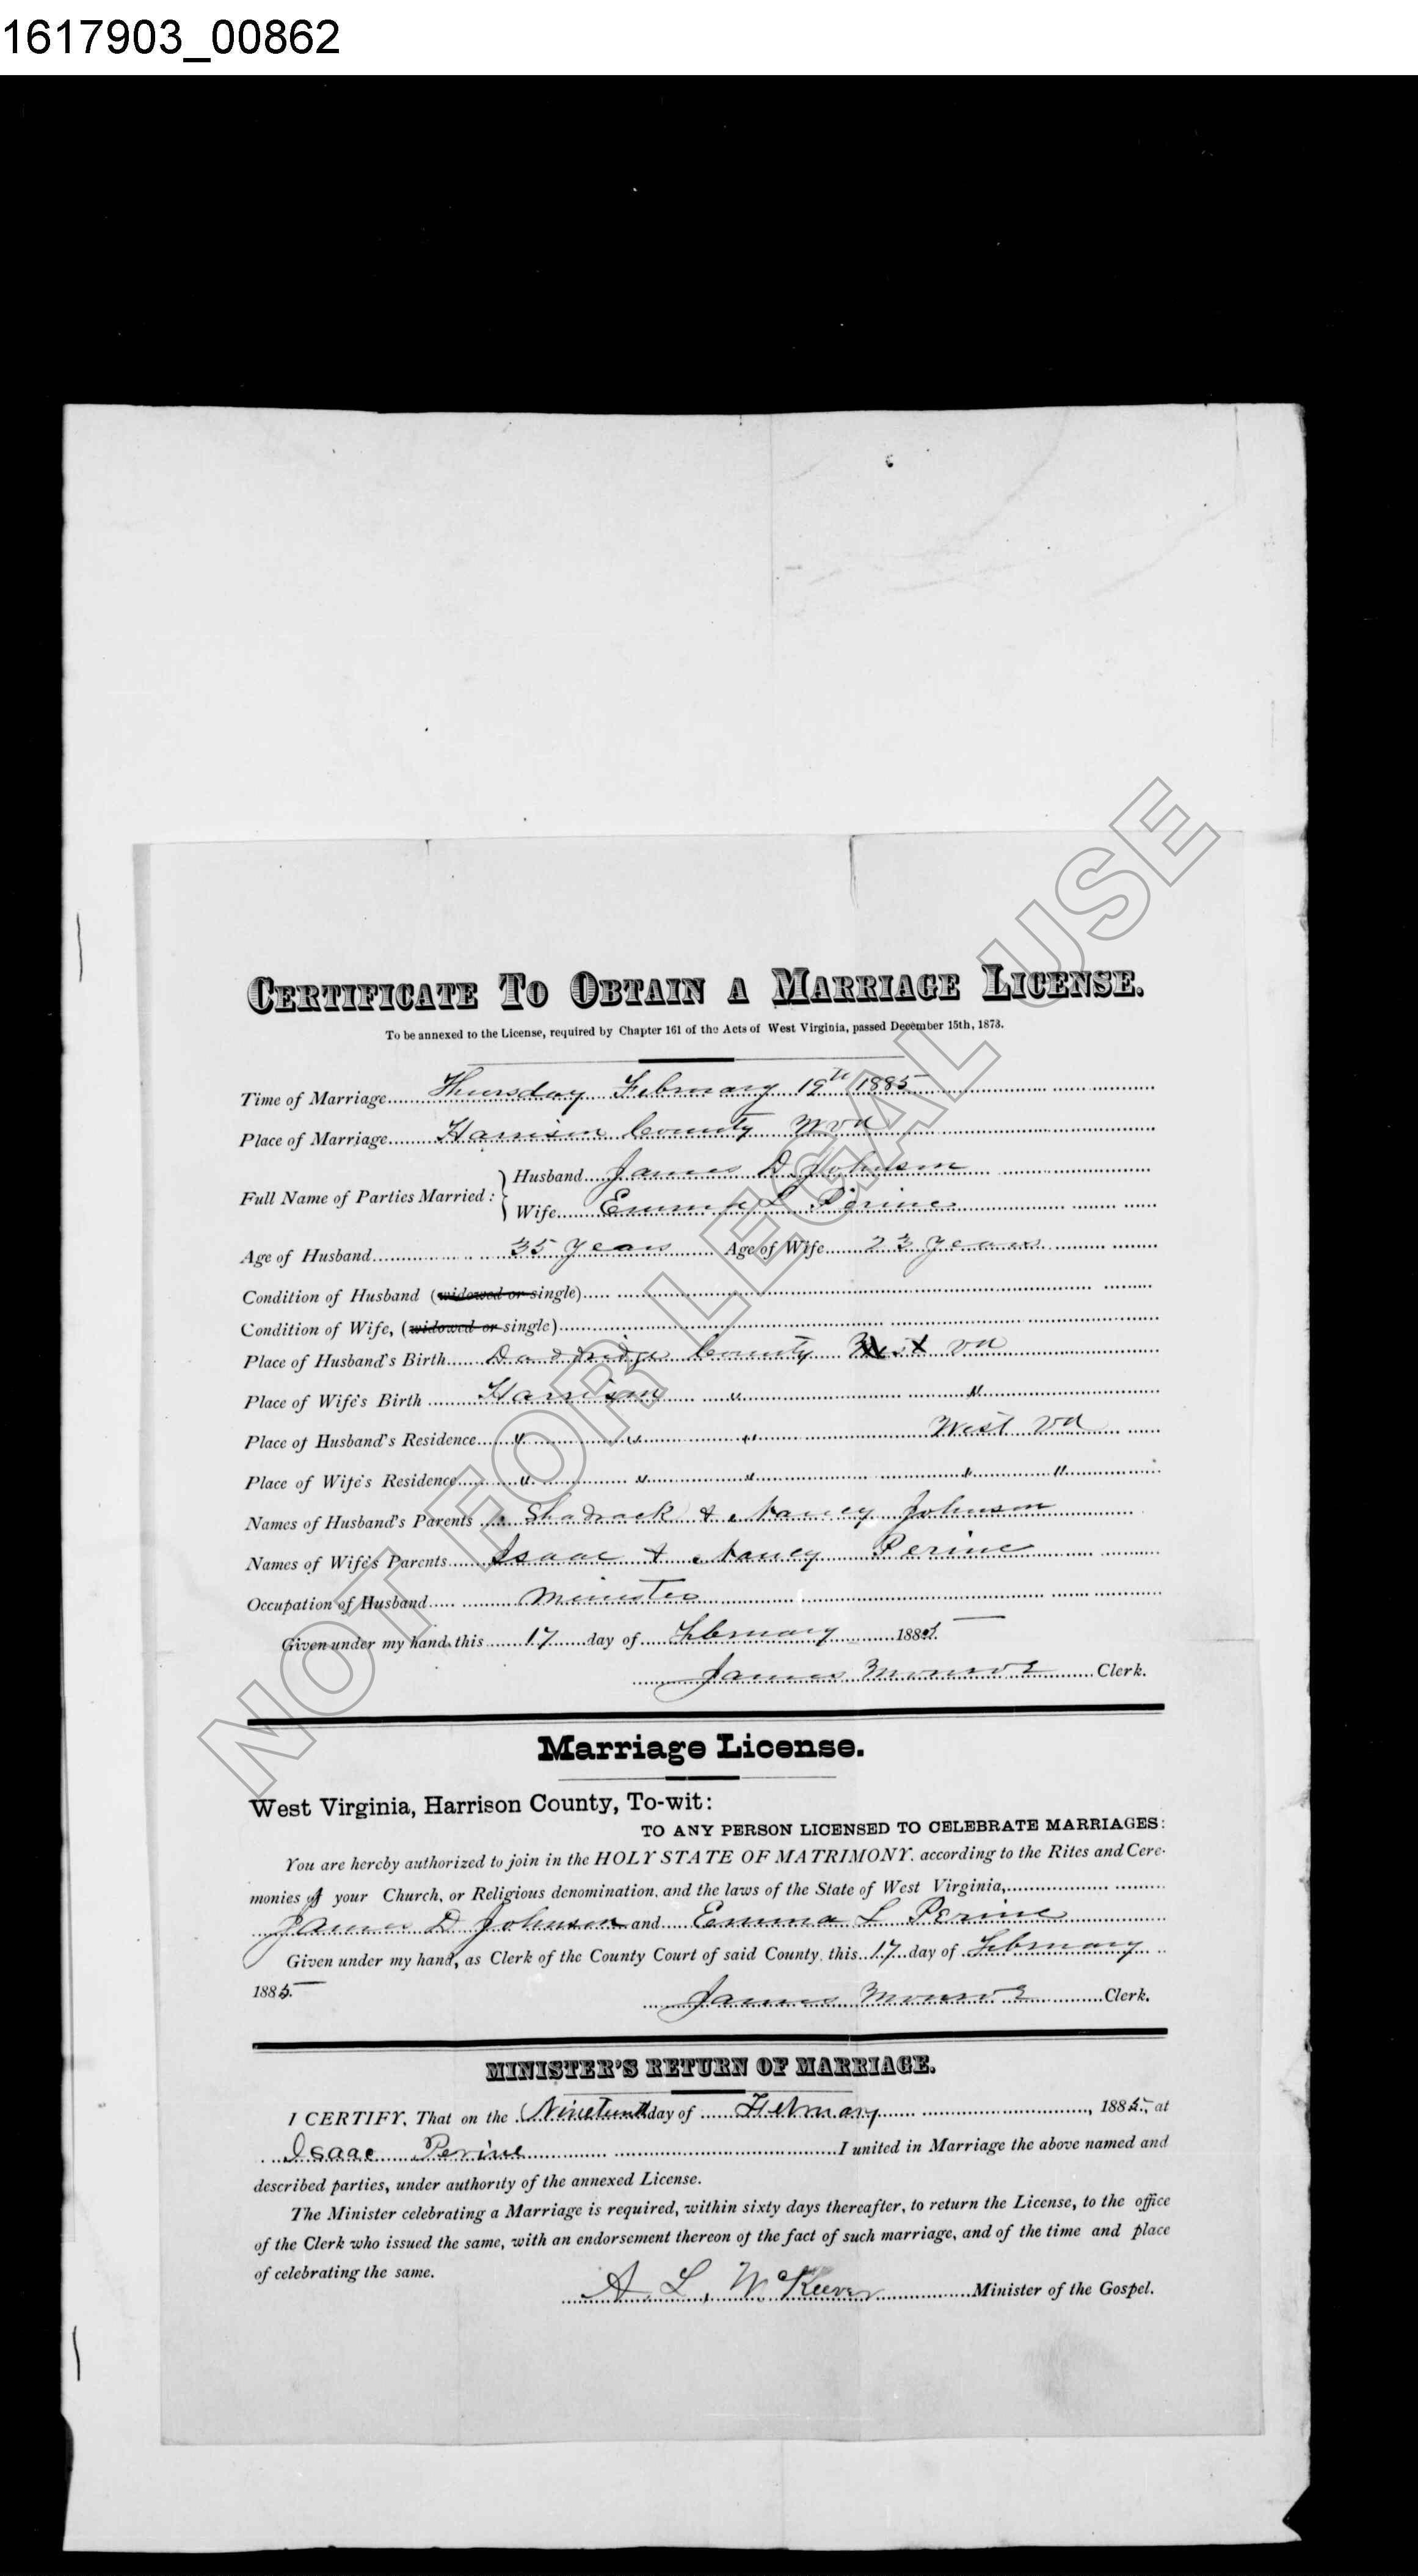 1617903_00862
CERTIFICATE TO OBTAIN A MARRIAGE LICENSE.
To be annexed to the License, required by Chapter 161 of the Acts of West Virginia, passed December 15th, 1873.
Time of Marriage Thursday February 19th 1885
Place of Marriage Harrison County W va
Full Name of Parties Married: Husband James D. Johnson
Wife Emma L Perine
Age of Husband 35 years Age of Wife 23 years
Condition of Husband (widowed or single)
Condition of Wife, (widowed or single)
Place of Husband's Birth Doddridge County West va
Place of Wife's Birth Harrison " "
Place of Husband's Residence " " " West va
Place of Wife's Residence " " " " "
Names of Husband's Parents Shadrack & Nancy Johnson
Names of Wife's Parents Isaac & Nancy Perine
Occupation of Husband Minister
Given under my hand this 17 day of February 1885
James Monroe Clerk.
Marriage License.
West Virginia, Harrison County, To-wit:
TO ANY PERSON LICENSED TO CELEBRATE MARRIAGES:
You are hereby authorized to join in the HOLY STATE OF MATRIMONY, according to the Rites and Cere-
monies of your Church, or Religious denomination, and the laws of the State of West Virginia,
James D Johnson and Emma L Perine
Given under my hand, as Clerk of the County Court of said County, this 17 day of February
1885.
James Monroe Clerk.
MINISTER'S RETURN OF MARRIAGE.
I CERTIFY, That on the Nineteenth day of February, 1885, at
Isaac Perine I united in Marriage the above named and
described parties, under authority of the annexed License.
The Minister celebrating a Marriage is required, within sixty days thereafter, to return the License, to the office
of the Clerk who issued the same, with an endorsement thereon of the fact of such marriage, and of the time and place
of celebrating the same.
A. L. McKeever Minister of the Gospel.
NOT FOR LEGAL USE